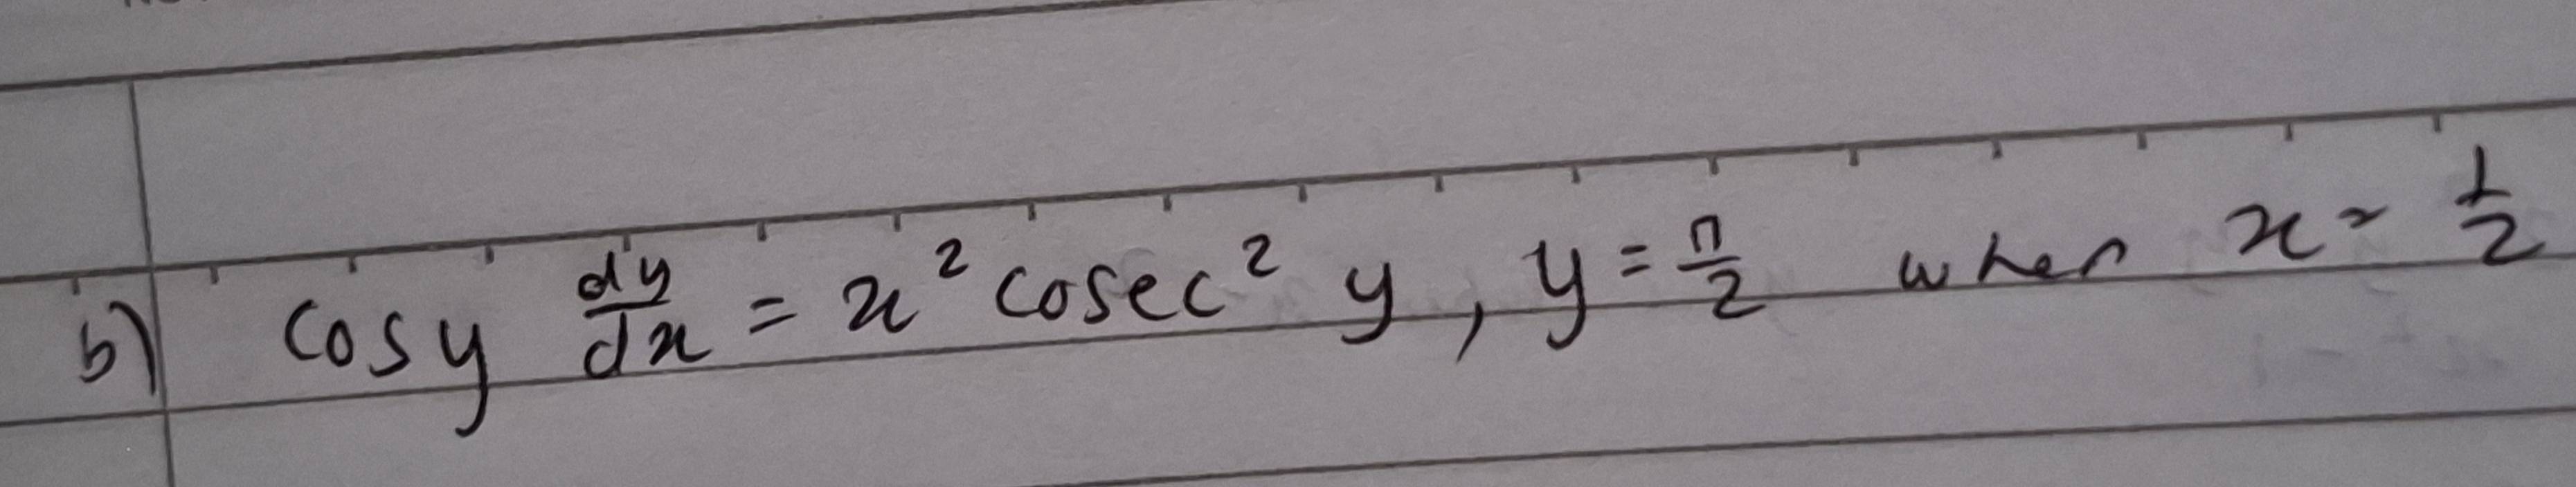 b) cos y dy/dx = x² cosec² y, y = π/2 when x = 1/2